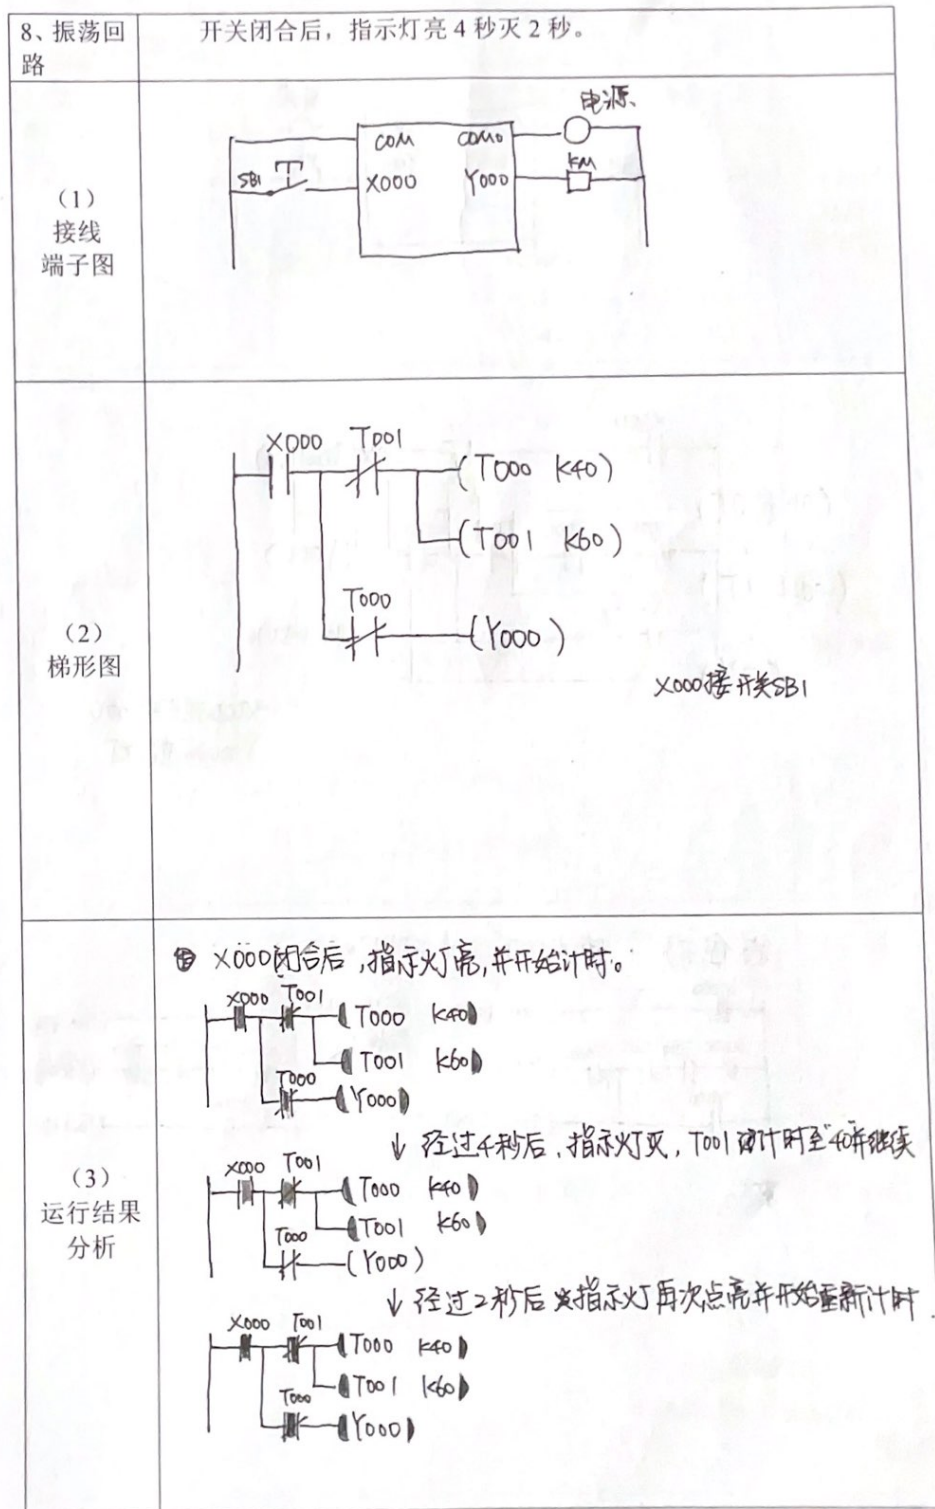 8、振荡回路
开关闭合后，指示灯亮4秒灭2秒。
（1）
接线
端子图
电源
COM COM0
KM
SB1 X000 Y000
（2）
梯形图
X000 T001
(T000 K40)
(T001 K60)
T000
(Y000)
X000接开关SB1
（3）
运行结果
分析
X000闭合后，指示灯亮，并开始计时。
X000 T001
(T000 K40)
(T001 K60)
T000
(Y000)
↓ 经过4秒后，指示灯灭，T001计时至40并继续
X000 T001
(T000 K40)
(T001 K60)
T000
(Y000)
↓ 经过2秒后 指示灯再次点亮并开始重新计时.
X000 T001
(T000 K40)
(T001 K60)
T000
(Y000)